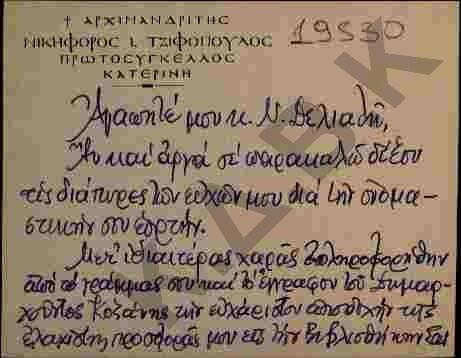 † ΑΡΧΙΜΑΝΔΡΙΤΗΣ
ΝΙΚΗΦΟΡΟΣ Ι. ΤΖΙΦΟΠΟΥΛΟΣ
ΠΡΩΤΟΣΥΓΚΕΛΛΟΣ
ΚΑΤΕΡΙΝΗ
19530
Ἀγαπητέ μου κ. Ν. Δελιαλῆ,
Ἄν καί ἀργά σέ παρακαλῶ δέξου
τίς διάπυρες τῶν εὐχῶν μου διά τήν ὀνομα-
στικήν σου ἑορτήν.
Μετ' ἰδιαιτέρας χαρᾶς ἐπληροφορήθην
ἀπό τό γράμμας σου καί τό ἔγγραφον τοῦ Δημαρ-
χοῦντος Κοζάνης τήν εὐχάριστον ἀποδοχήν τῆς
ἐλαχίστης προσφορᾶς μου εἰς τήν βιβλιοθήκην σας
ΚΔΒΚ